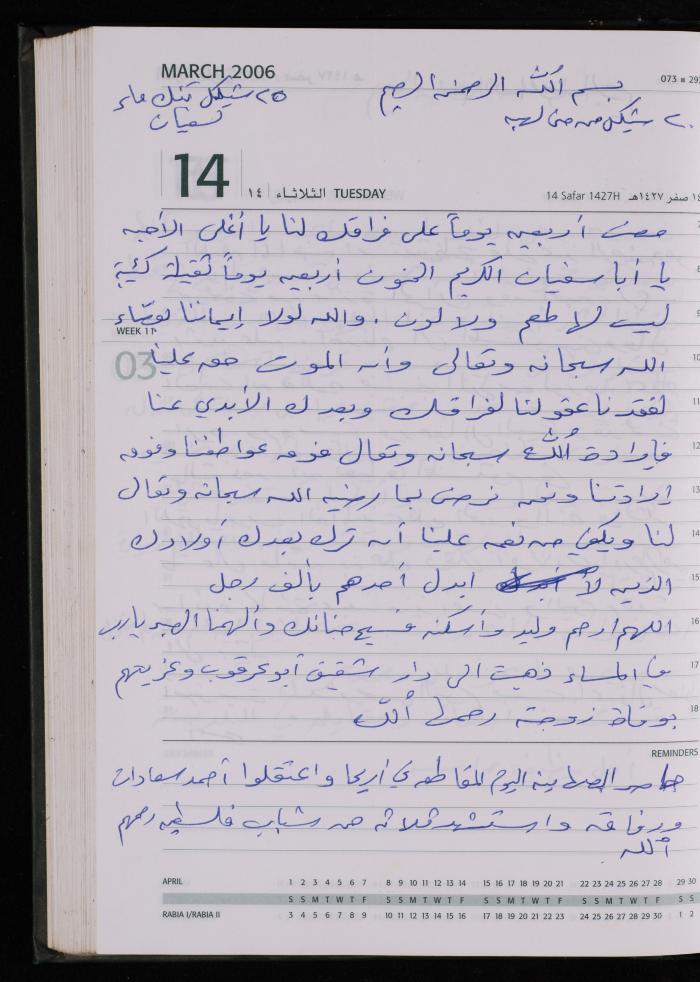 MARCH 2006
073 ■ 292
بسم الله الرحمن الرحيم
٢٥ شيكل تنك ماء
نسفيات
٢٠ شيكل من لهبه
14 ١٤ الثلاثاء TUESDAY
14 Safar 1427H ١٤ صفر ١٤٢٧هـ
مضت أربعين يوماً على فراقك لنا يا أغلى الأحبه
يا أبا سفيان الكريم الحنون أربعين يوماً ثقيلة كئيبة
ليس لها طعم ولا لون. والله لولا إيماننا بقضاء
WEEK 11
الله سبحانه وتعالى وأن الموت حق علينا
03
لفقدنا عقولنا لفراقك وبعدك الأبدي عنا
فإرادة الله سبحانه وتعالى فوق عواطفنا وفوق
إرادتنا ونحن نرضى بما رضيه الله سبحانه وتعالى
لنا ويكفي من نعمه علينا أن ترك بعدك أولادك
الذين لا ابدل أحدهم بألف رجل
اللهم ارحم وليد وأسكنه فسيح جنانك وألهمنا الصبر يارب
في المساء ذهبت الى دار شقيق أبو عرقوب وعزيتهم
بوفاة زوجته رحمها الله
REMINDERS
حاصر الصهاينة اليوم المقاطعة في أريحا واعتقلوا أحمد سعادات
ورفاقه واستشهد ثلاثة من شباب فلسطين رحمهم
الله
APRIL 1 2 3 4 5 6 7 8 9 10 11 12 13 14 15 16 17 18 19 20 21 22 23 24 25 26 27 28 29 30
S S M T W T F S S M T W T F S S M T W T F S S M T W T F S S
RABIA I/RABIA II 3 4 5 6 7 8 9 10 11 12 13 14 15 16 17 18 19 20 21 22 23 24 25 26 27 28 29 30 1 2